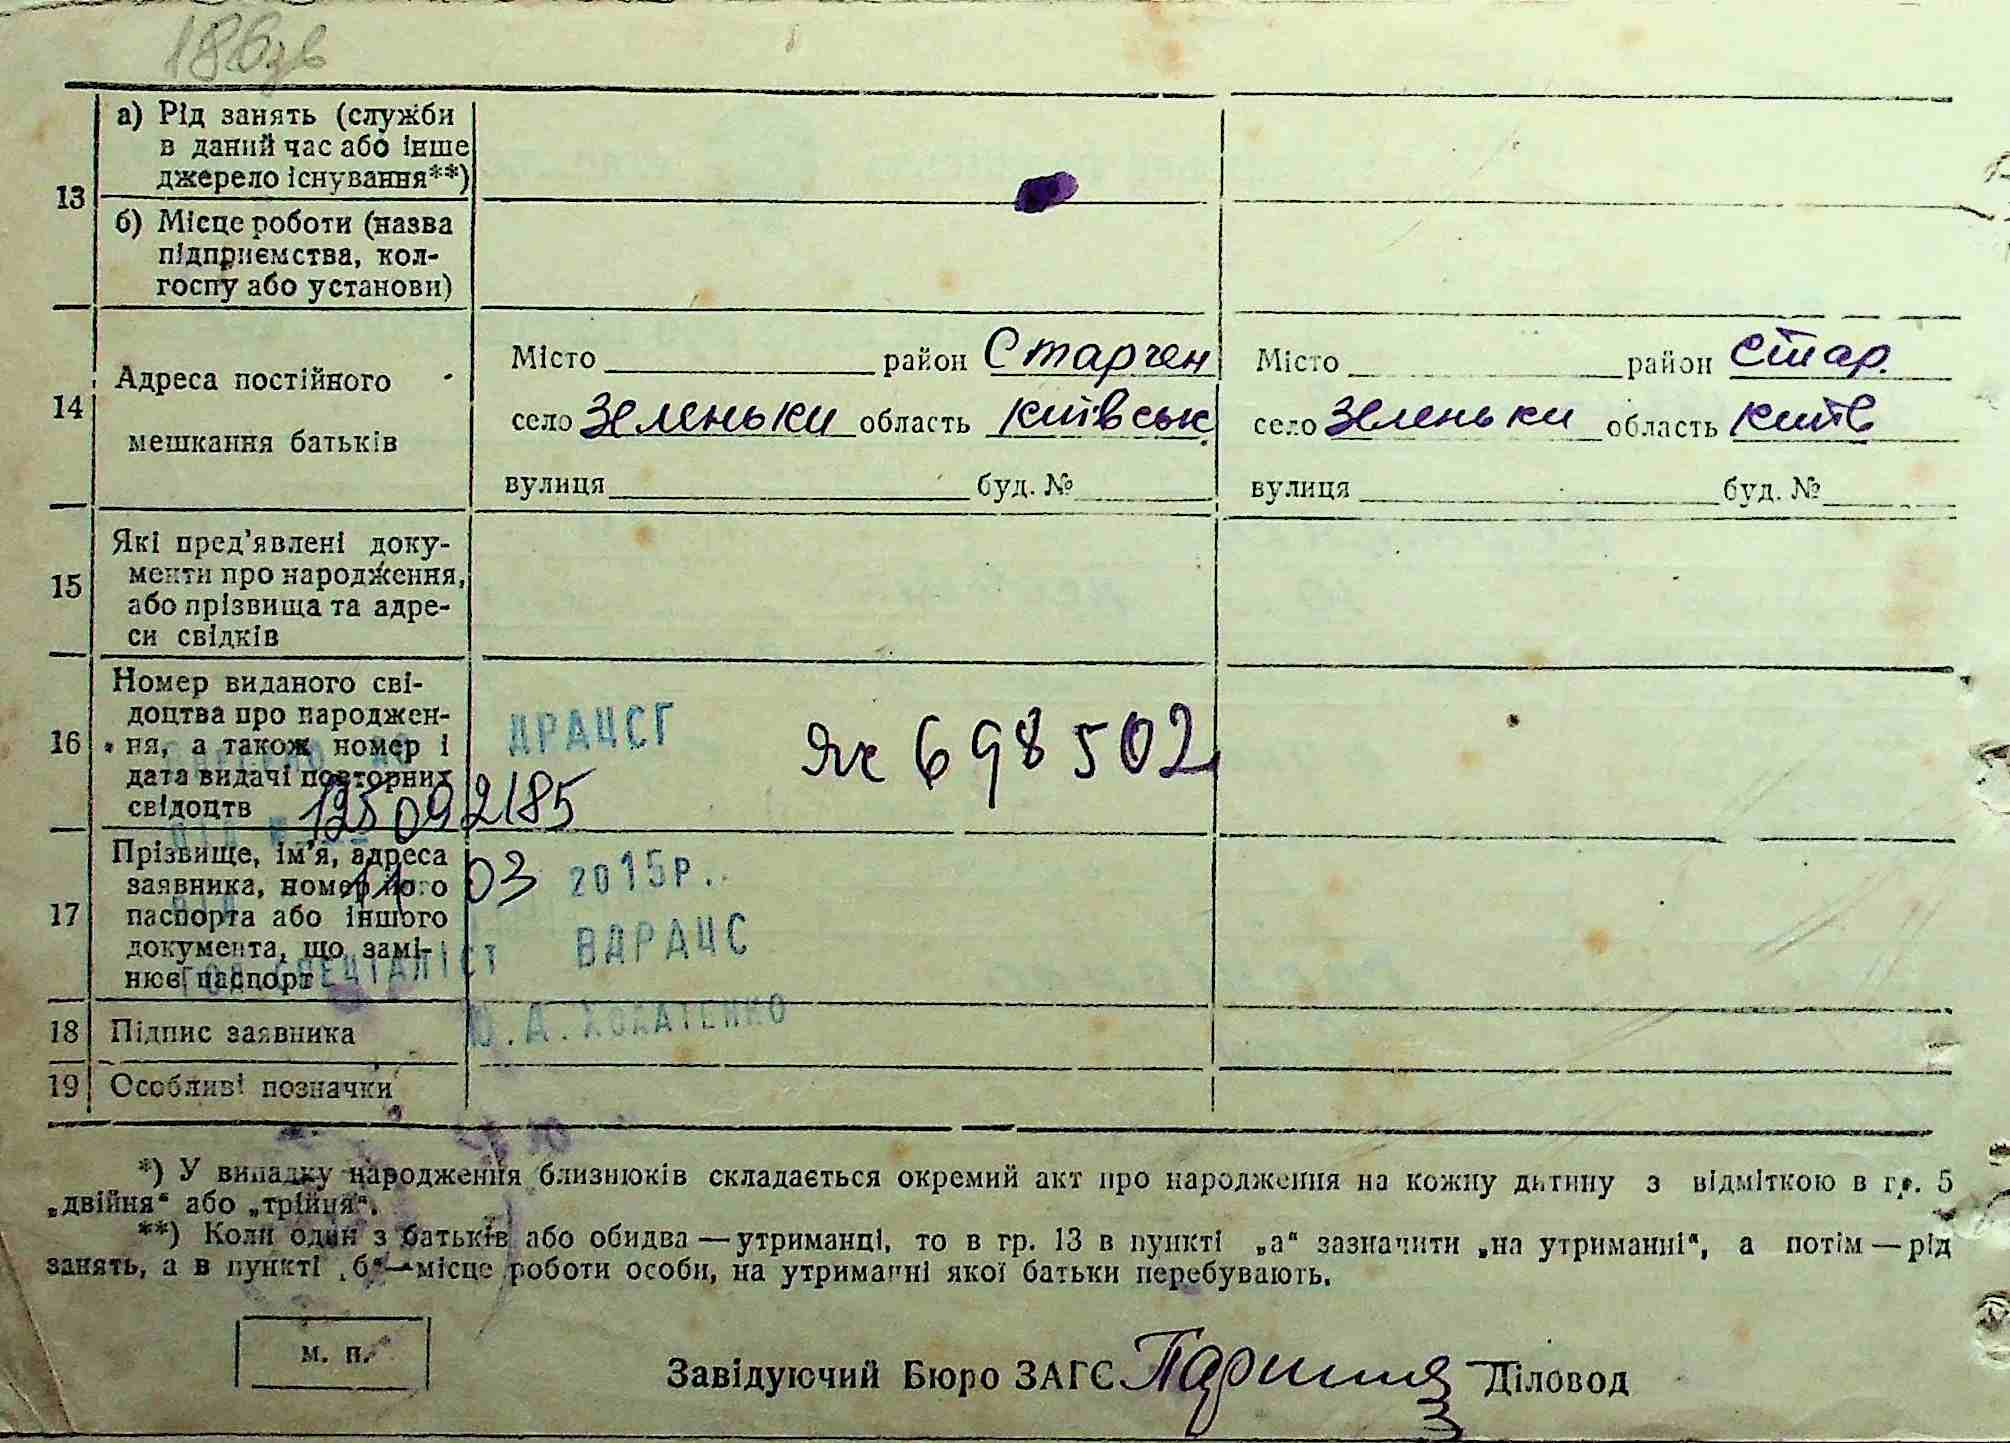 186зв
13
а) Рід занять (служби
в даний час або інше
джерело існування**)
б) Місце роботи (назва
підприємства, кол-
госпу або установи)
14
Адреса постійного
мешкання батьків
Місто район Старчен
село Зеленьки область Київськ
вулиця буд. №
Місто район Стар.
село Зеленьки область Київ
вулиця буд. №
15
Які пред'явлені доку-
менти про народження,
або прізвища та адре-
си свідків
16
Номер виданого сві-
доцтва про народжен-
ня, а також номер і
дата видачі повторних
свідоцтв
ДРАЦСГ
ЯК 698502
125092185
17
Прізвище, ім'я, адреса
заявника, номер його
паспорта або іншого
документа, що замі-
нює паспорт
11 03 2015р.
СПЕЦІАЛІСТ ВДРАЦС
18
Підпис заявника
19
Особливі позначки
*) У випадку народження близнюків складається окремий акт про народження на кожну дитину з відміткою в гр. 5
„двійня“ або „трійня“.
**) Коли один з батьків або обидва—утриманці, то в гр. 13 в пункті „а“ зазначити „на утриманні“, а потім—рід
занять, а в пункті „б“—місце роботи особи, на утриманні якої батьки перебувають.
м. п.
Завідуючий Бюро ЗАГС Діловод